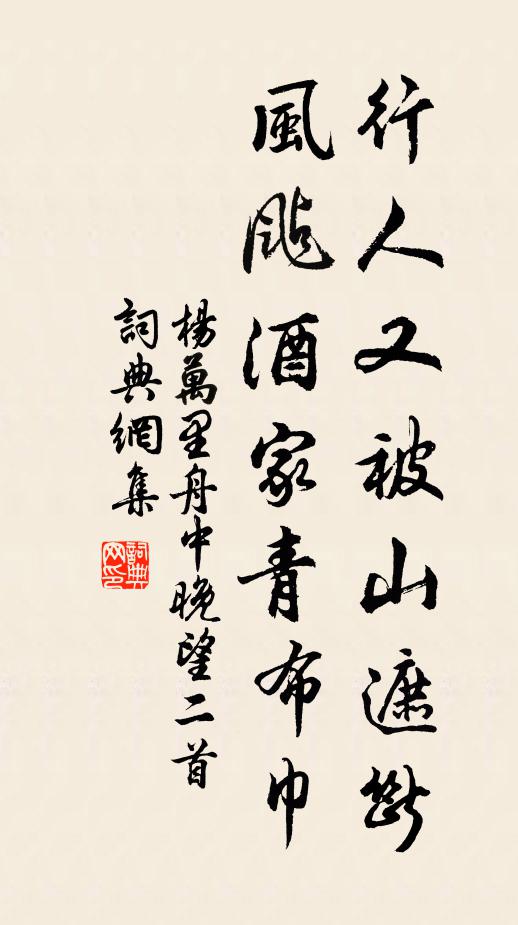 行人又被山遮斷
風颭酒家青布巾
楊萬里舟中晚望二首
詞典網集
詞典网印